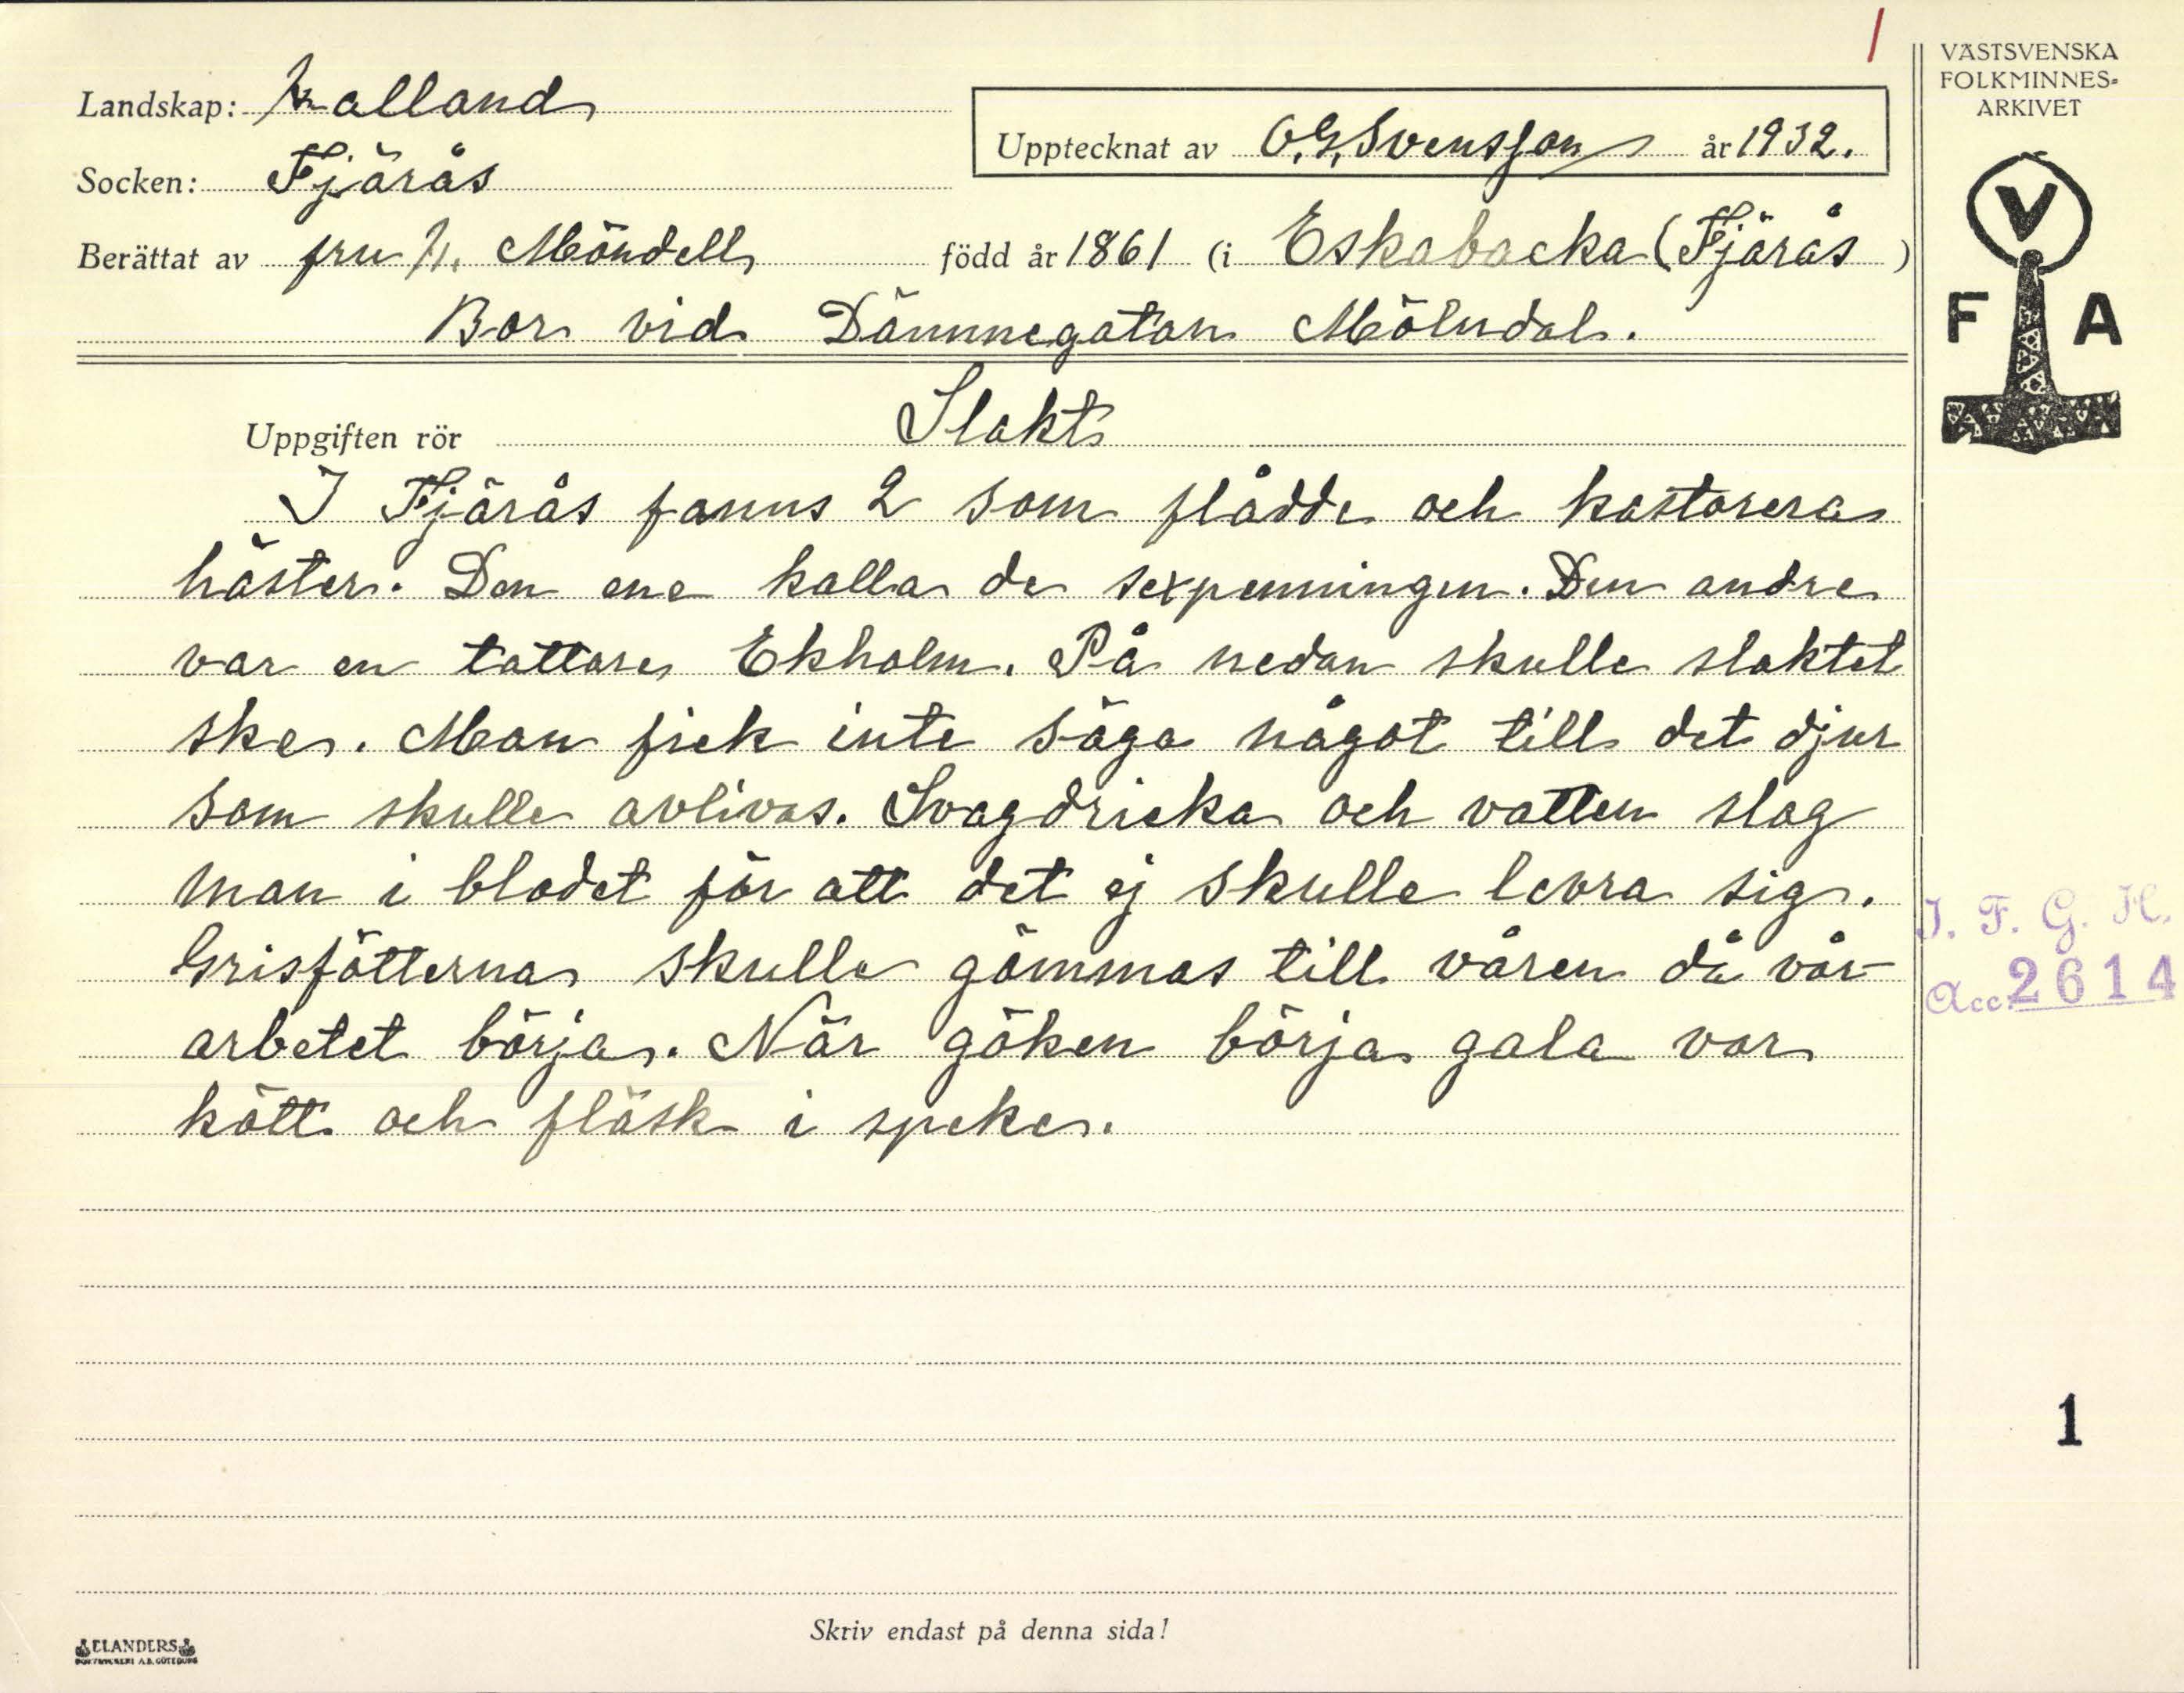 1
VÄSTSVENSKA
FOLKMINNES-
ARKIVET
V
F A
Landskap: Halland
Socken: Fjärås
Upptecknat av O.G. Svensson år 1932.
Berättat av fru H. Möndell född år 1861 (i Eskabacka (Fjärås )
Bor vid Dämmegatan Mölndal.
Uppgiften rör Slakt
I Fjärås fanns 2 som flådde och kastarera
häster. Den ene kalla de sexpenningen. Den andre
var en tattare Ekholm. På nedan skulle slaktet
ske. Man fick inte säga något till det djur
som skulle avlivas. Svagdricka och vatten slog
man i blodet för att det ej skulle levra sig.
Grisfötterna skulle gömmas till våren då vår-
arbetet börja. När göken börja gala var
kött och fläsk i speke.
I. F. G. H.
Acc. 2614
1
Skriv endast på denna sida!
ELANDERS
BOKTRYCKERI A.B. GÖTEBORG